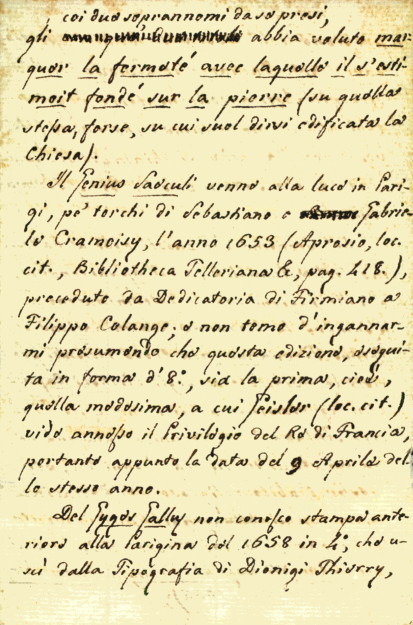 coi duo soprannomi da so presi,
gli abbia voluto mar-
quer la fermeté avec laquelle il s'esti-
moit fondé sur la pierre (su quella
stessa, forse, su cui suol dirsi edificata la
Chiesa).
Il Genius Saeculi venne alla luce in Pari-
gi, pe' torchi di Sebastiano e Gabrie-
lo Cramoisy, l'anno 1653 (Aprosio, loc.
cit., Bibliotheca Telleriana &, pag. 418.),
preceduto da Dedicatoria di Firmiano a
Filippo Colange; e non temo d'ingannar-
mi presumendo che questa edizione, esegui-
ta in forma d'8.°, sia la prima, cioè,
quella medesima, a cui Geisler (loc. cit.)
vide annesso il Privilegio del Re di Francia,
portante appunto la data del 9 Aprile del-
lo stesso anno.
Del Gyges Gallus non conosco stampa ante-
riore alla Parigina del 1658 in 4.°, che u-
scì dalla Tipografia di Dionigi Thierry,